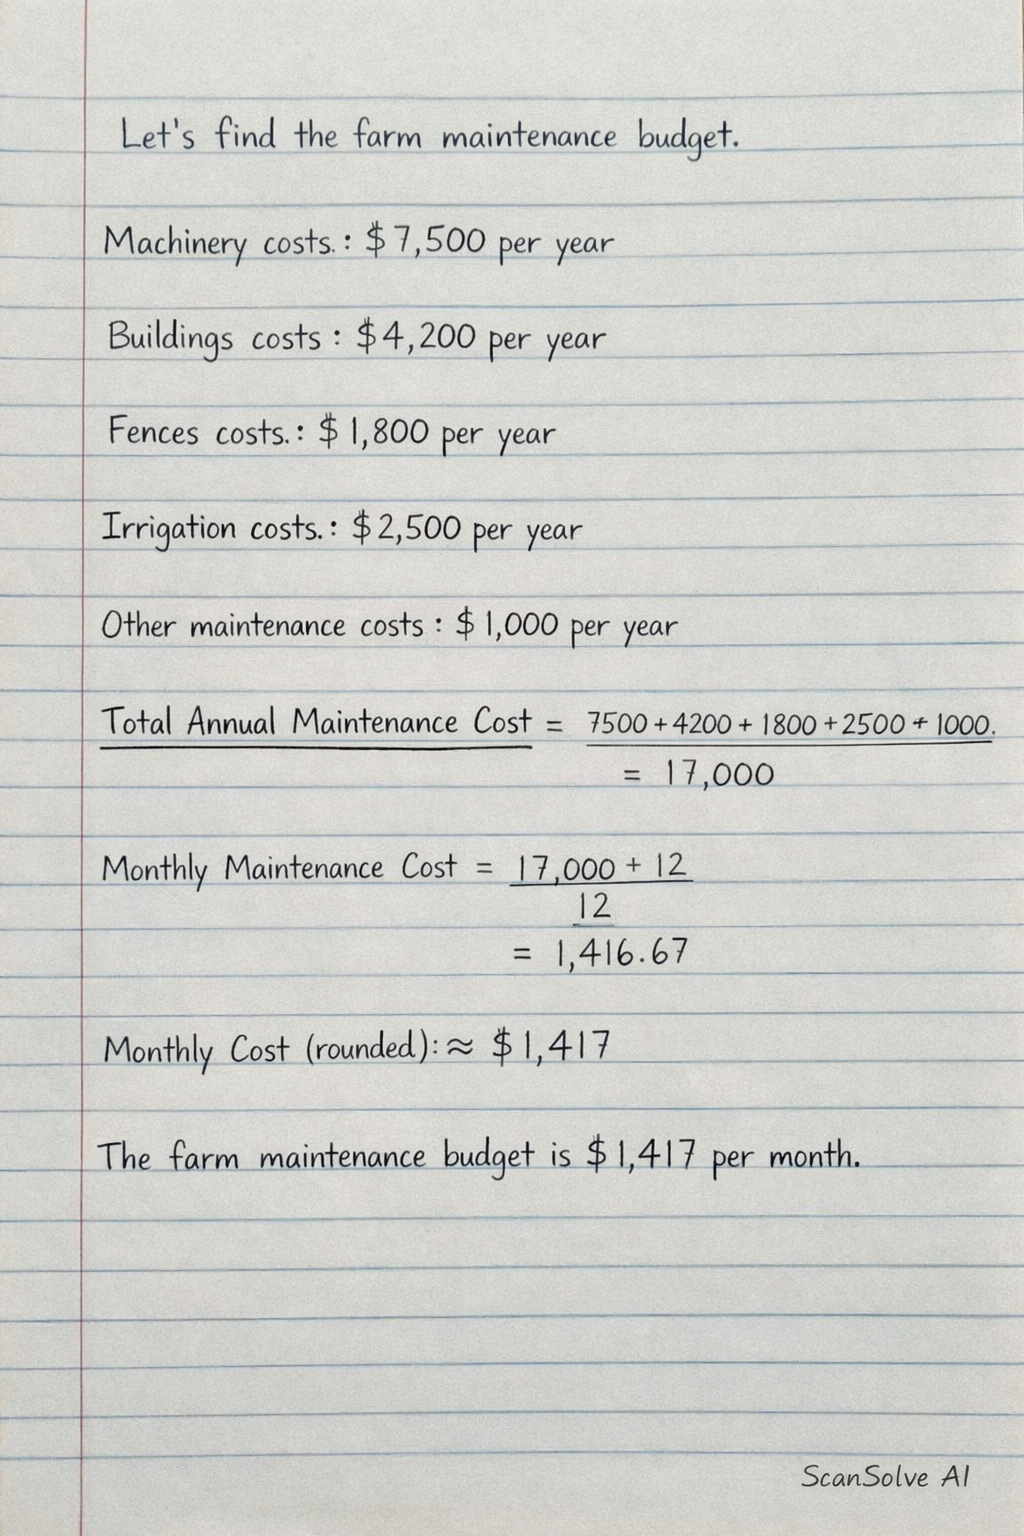 Let's find the farm maintenance budget.
Machinery costs.: $7,500 per year
Buildings costs : $4,200 per year
Fences costs.: $1,800 per year
Irrigation costs.: $2,500 per year
Other maintenance costs : $1,000 per year
Total Annual Maintenance Cost = 7500 + 4200 + 1800 + 2500 + 1000.
= 17,000
Monthly Maintenance Cost = 17,000 + 12
12
= 1,416.67
Monthly Cost (rounded): ≈ $1,417
The farm maintenance budget is $1,417 per month.
ScanSolve AI